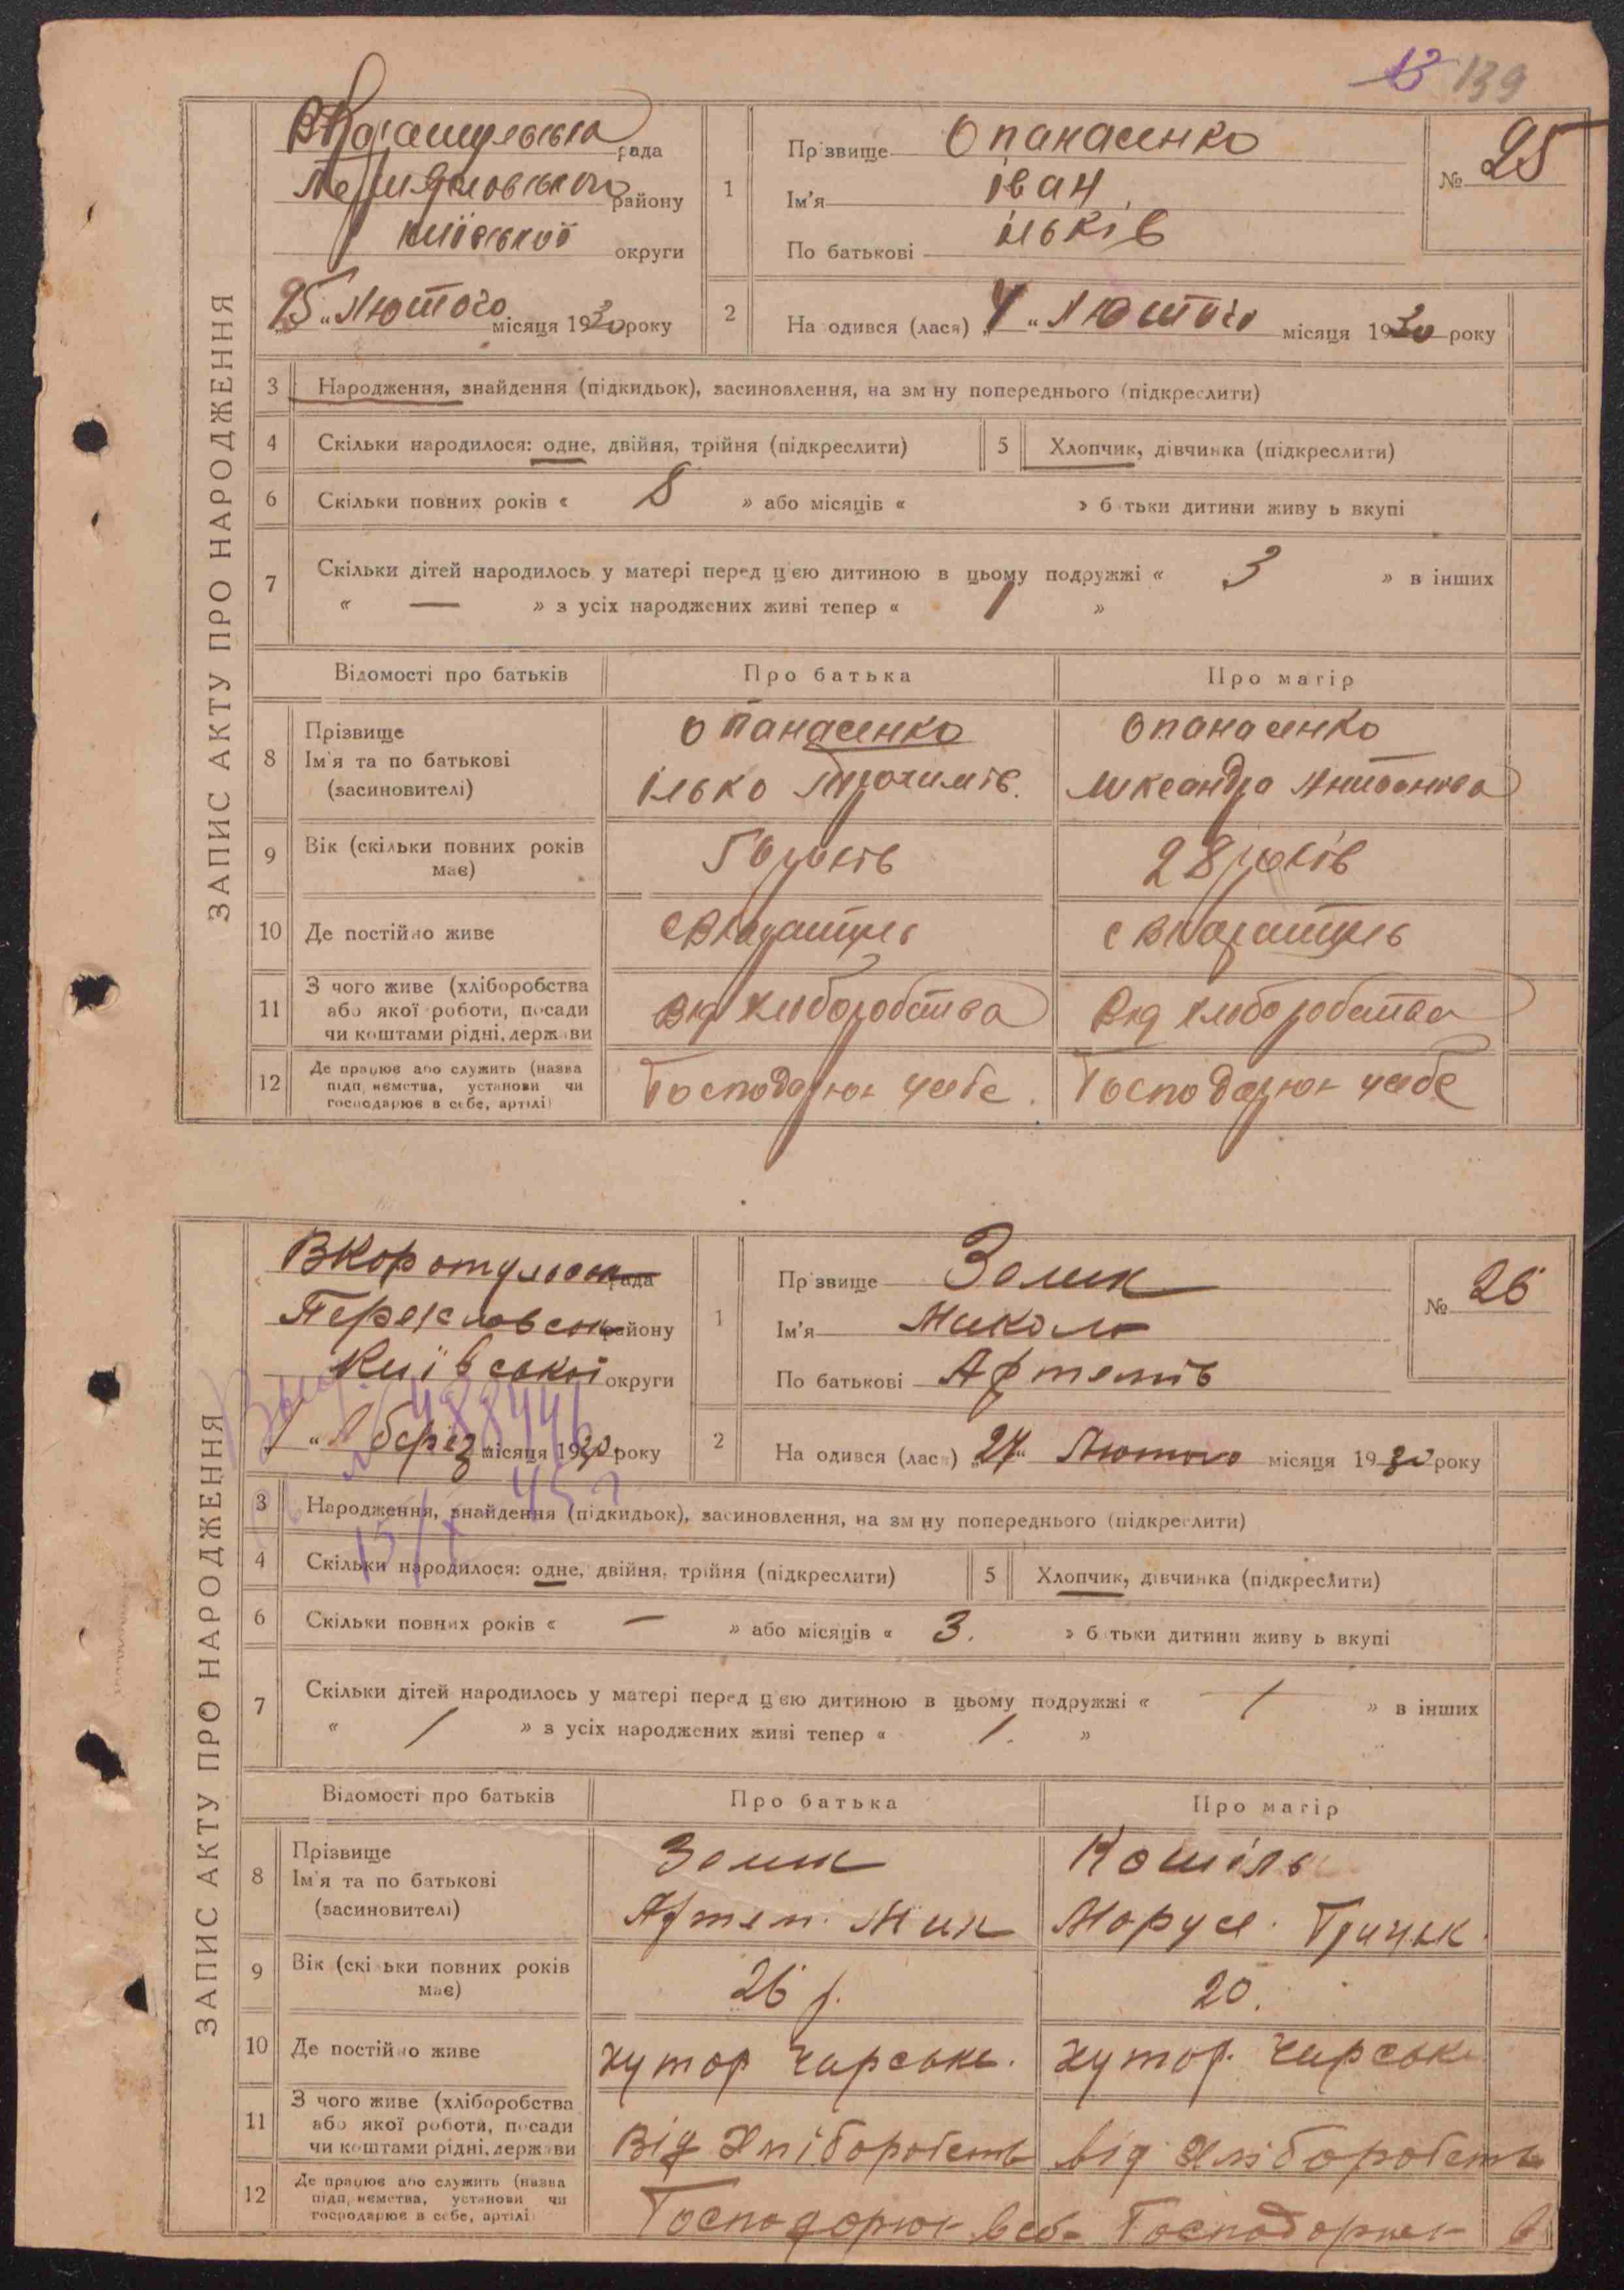 13 139
ЗАПИС АКТУ ПРО НАРОДЖЕННЯ
рада
району
київської округи
25 „ Лютого місяця 1930 року
1
Прізвище Опанасенко
Ім'я Іван
По батькові Ільків
№ 25
2
На одився (лася) „4“ Лютого місяця 1930 року
3 Народження, знайдення (підкидьок), засиновлення, на зм ну попереднього (підкреслити)
4 Скільки народилося: одне, двійня, трійня (підкреслити)
5 Хлопчик, дівчинка (підкреслити)
6 Скільки повних років « 8 » або місяців « » б тьки дитини живу ь вкупі
7 Скільки дітей народилось у матері перед цією дитиною в цьому подружжі « 3 » в інших
« — » з усіх народжених живі тепер « 1 »
Відомості про батьків Про батька Про матір
8 Прізвище
Ім'я та по батькові
(засиновителі)
Опанасенко
Ілько Трохимів.
Опанасенко
9 Вік (скільки повних років
має)
років
28 років
10 Де постійно живе
11 З чого живе (хліборобства
або якої роботи, посади
чи коштами рідні, держави
Від хліборобства
Від хліборобства
12 Де працює або служить (назва
підп иємства, установи чи
господарює в себе, артілі)
Господарює
Господарює
ЗАПИС АКТУ ПРО НАРОДЖЕННЯ
рада
району
Київської округи
1 „ берез місяця 1930 року
488446
45 г
1
Прізвище Зелик
Ім'я Микола
По батькові Артемів
№ 26
2
На одився (лася) „27“ Лютого місяця 1930 року
3 Народження, знайдення (підкидьок), засиновлення, на зм ну попереднього (підкреслити)
4 Скільки народилося: одне, двійня, трійня (підкреслити)
5 Хлопчик, дівчинка (підкреслити)
6 Скільки повних років « — » або місяців « 3. » б тьки дитини живу ь вкупі
7 Скільки дітей народилось у матері перед цією дитиною в цьому подружжі « / » в інших
« / » з усіх народжених живі тепер « /. »
Відомості про батьків Про батька Про матір
8 Прізвище
Ім'я та по батькові
(засиновителі)
Зелик
Артем. Мик
Кошіль
Маруся.
9 Вік (скільки повних років
має)
26 р.
20.
10 Де постійно живе
хутор
хутор.
11 З чого живе (хліборобства
або якої роботи, посади
чи коштами рідні, держави
Від Хліборобств
від Хліборобств
12 Де працює або служить (назва
підп иємства, установи чи
господарює в себе, артілі
Господорює в себе
Господорює в